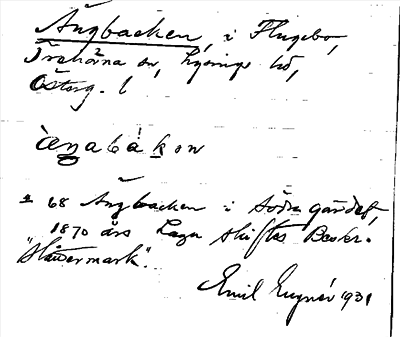 Ängbacken, i Flugebo,
Örehärna sn, Lysings hd,
Österg. l
ænabàkɐn
± 68 Ängbacken i Södra gärdet,
1870 års Laga skiftes Beskr.
"Slåttermark".
Emil Eugnér 1931